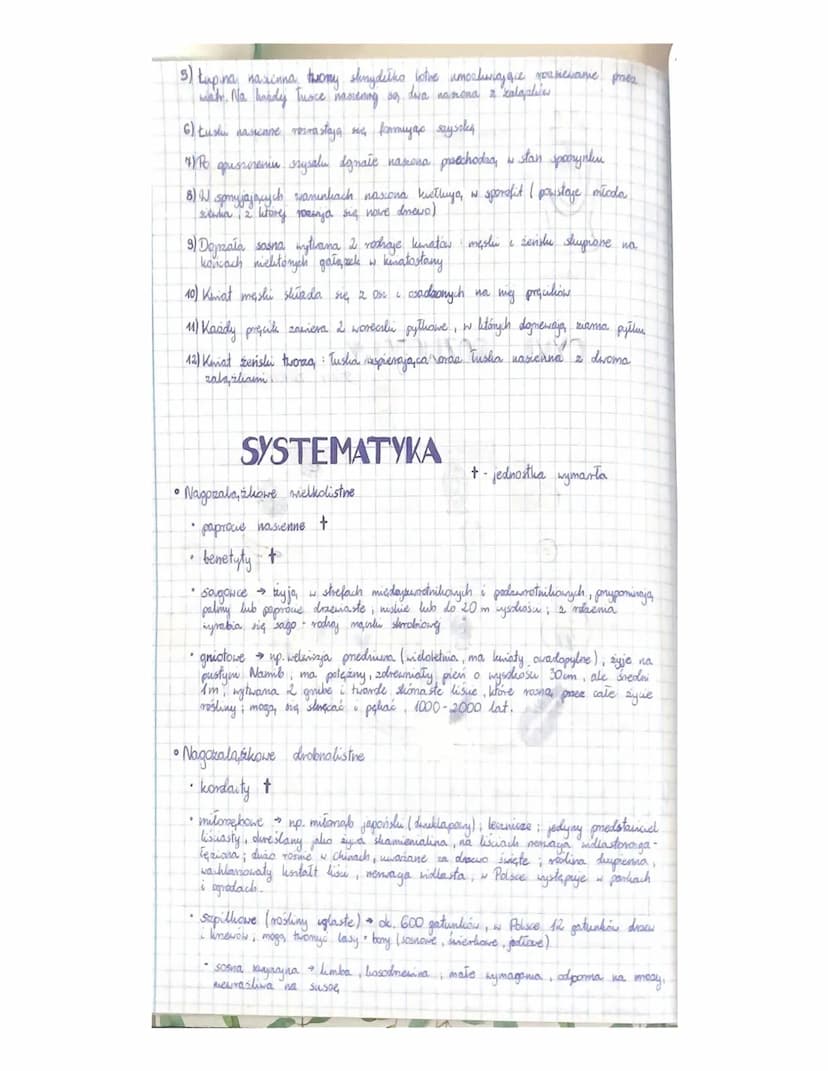 5) Łupina nasienna tworzy skrzydełko lotne umożliwiające rozsiewanie przez
wiatr. Na każdej łusce nasiennej są dwa nasiona z zalążków
6) Łuski nasienne rozrastają się formując szyszkę
7) Po opuszczeniu szyszki dojrzałe nasiona przechodzą w stan spoczynku
8) W sprzyjających warunkach nasiona kiełkują w sporofit (powstaje młoda
siewka, z której rozwija się nowe drzewo)
9) Dojrzała sosna wytwarza 2 rodzaje kwiatów męskie i żeńskie skupione na
końcach niektórych gałązek w kwiatostany
10) Kwiat męski składa się z osi i osadzonych na niej pręcików
11) Każdy pręcik zawiera 2 woreczki pyłkowe, w których dojrzewają ziarna pyłku
12) Kwiat żeński tworzą: łuska wspierająca oraz łuska nasienna z dwoma
zalążkami.
SYSTEMATYKA
✝ - jednostka wymarła
• Nagozalążkowe wielkolistne
• paprocie nasienne ✝
• benetyty ✝
• sagowce → żyją w strefach międzyzwrotnikowych i podzwrotnikowych, przypominają
palmy lub paprocie drzewiaste, niskie lub do 20 m wysokości; z rdzenia
wyrabia się sago - rodzaj mączki skrobiowej
• gniotowe → np. welwiczja przedziwna (wieloletnia, ma kwiaty owadopylne), żyje na
pustyni Namib, ma potężny, zdrewniały pień o wysokości 30cm, ale średni
1m, wytwarza 2 grube i twarde skórzaste liście, które rosną przez całe życie
rośliny; mogą się skręcać i pękać, 1000-2000 lat.
• Nagozalążkowe drobnolistne
• kordaity ✝
• miłorzębowe → np. miłorząb japoński (dwuklapowy); lecznicze; jedyny przedstawiciel
liściasty, określany jako żywa skamienialina, na liściach nerwacja widlastorozga-
łęziona; dużo rośnie w Chinach, uważane za drzewo święte; roślina dwupienna,
wachlarzowaty kształt liści, nerwacja widlasta, w Polsce występuje w parkach
i ogrodach.
• szpilkowe (rośliny iglaste) → ok. 600 gatunków, w Polsce 12 gatunków drzew
i krzewów, mogą tworzyć lasy - bory (sosnowe, świerkowe, jodłowe)
• sosna zwyczajna → limba, kosodrzewina, małe wymagania, odporna na mrozy,
niewrażliwa na suszę